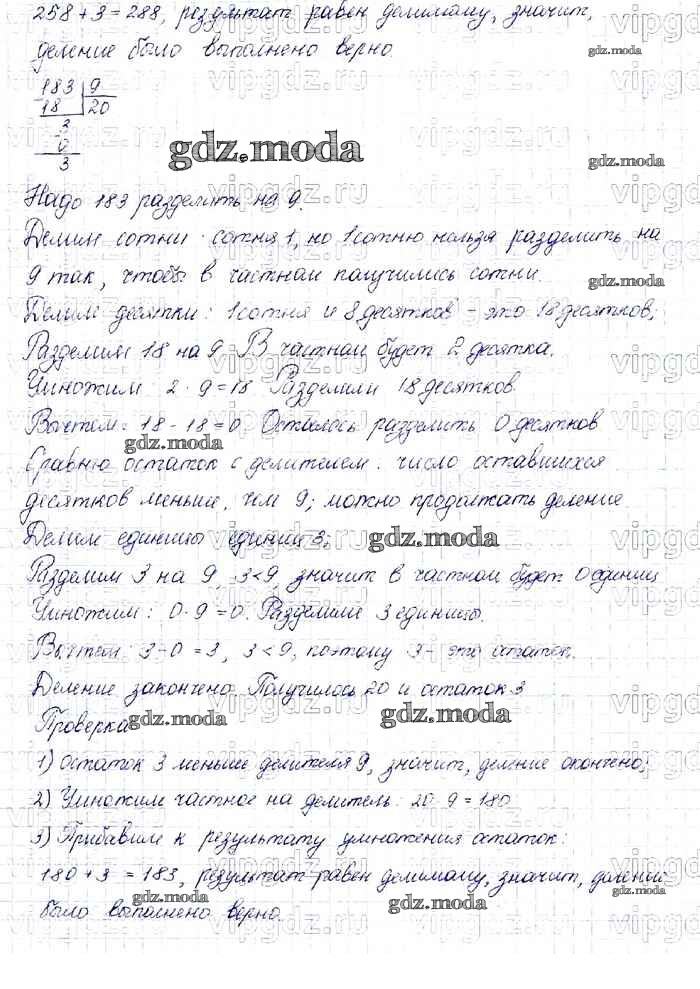 258 + 3 = 288, результат равен делимому, значит,
деление было выполнено верно.
gdz.moda
183 9
18 20
3
0
3
gdz.moda
gdz.moda
Надо 183 разделить на 9.
Делим сотни: сотня 1, но 1 сотню нельзя разделить на
9 так, чтобы в частном получились сотни.
gdz.moda
Делим десятки: 1 сотня и 8 десятков - это 18 десятков;
Разделим 18 на 9. В частном будет 2 десятка.
Умножим: 2 · 9 = 18 Разделили 18 десятков.
Вычтем: 18 - 18 = 0. Осталось разделить 0 десятков
gdz.moda
Сравню остаток с делителем: число оставшихся
десятков меньше, чем 9; можно продолжать деление.
Делим единицы единиц 3;
gdz.moda
Разделим 3 на 9 3<9 значит в частном будет 0 единиц
Умножим: 0 · 9 = 0. Разделили 3 единицы.
Вычтем: 3 - 0 = 3, 3 < 9, поэтому 3 - это остаток.
Деление закончено. Получилось 20 и остаток 3
Проверка
gdz.moda
gdz.moda
1) Остаток 3 меньше делителя 9, значит, деление окончено;
2) Умножим частное на делитель: 20 · 9 = 180
3) Прибавим к результату умножения остаток:
180 + 3 = 183, результат равен делимому, значит, деление
gdz.moda
gdz.moda
было выполнено верно.
vipgdz.ru